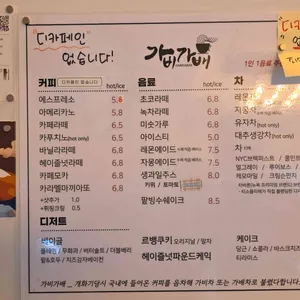 "디카페인"
없습니다!
가비가배
1인 1음료
커피 디카페인 없습니다. hot/ice
에스프레소 5.8
아메리카노 5.8
카페라떼 6.5
카푸치노(hot only) 6.5
바닐라라떼 6.8
헤이즐넛라떼 6.8
카페모카 6.8
카라멜마끼아또 6.8
+샷추가 1.0
+휘핑크림 0.5
음료 hot/ice
초코라떼 6.8
녹차라떼 6.8
미숫가루 6.8
아이스티 5.0
레몬에이드 6.8
자몽에이드 7.5
생과일주스 8.0
키위 / 토마토
팥빙수쉐이크 8.5
차
레몬
자몽차
유자차(hot only)
대추생강차(hot only)
디저트
베이글
플레인 / 무화과 / 버터솔트 / 더블베리
팥&호두 / 치즈감자베이컨
르뱅쿠키 오리지널 / 말차
헤이즐넛파운드케익
케이크
당근 / 쇼콜라 / 바스크치즈
티라미수
가비가배 _ 개화기당시 국내에 들어온 커피를 음차해 가비차 또는 가배차로 불렸다합니다.